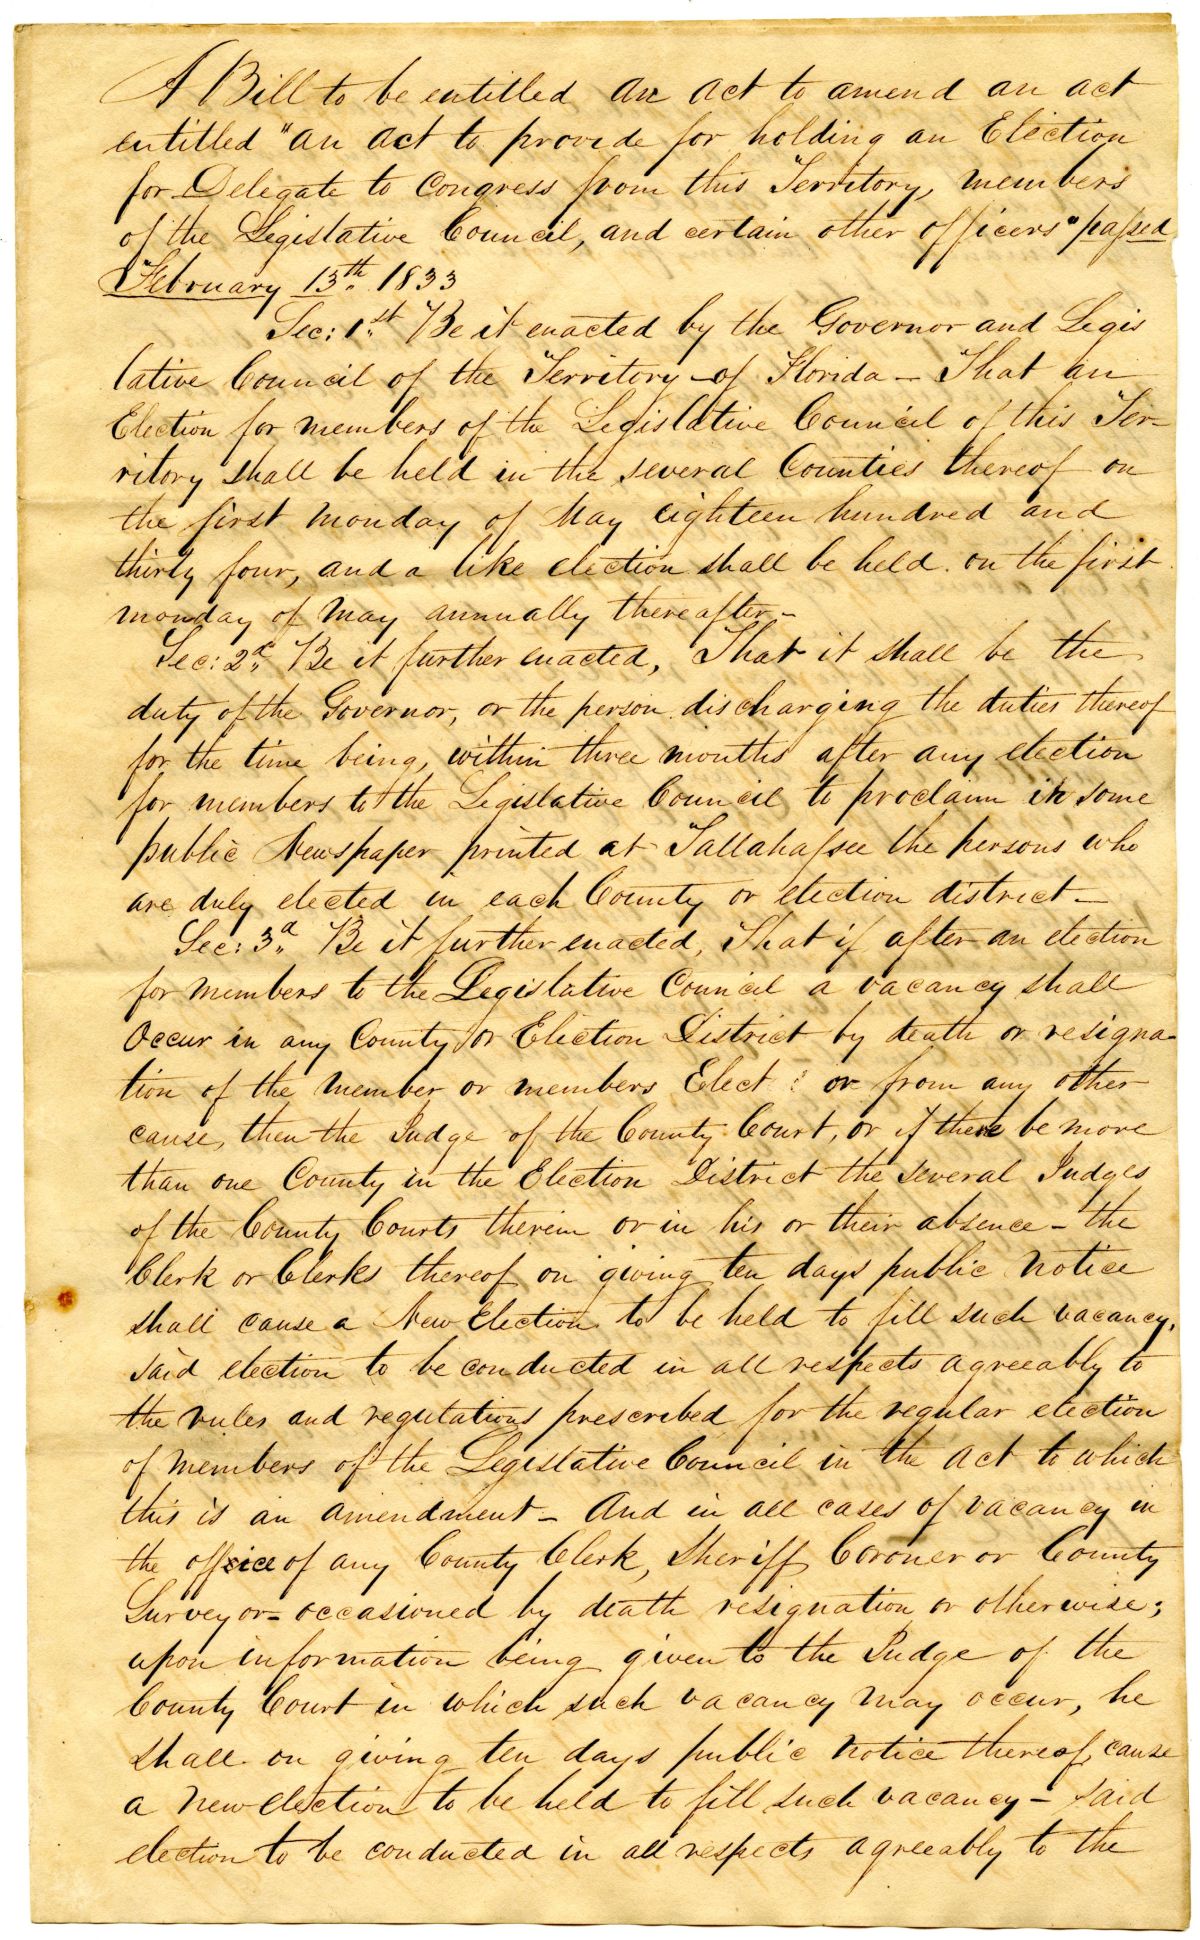 A Bill to be entitled an act to amend an act
entitled "an act to provide for holding an Election
for Delegate to Congress from this Territory, members
of the Legislative Council, and certain other officers" passed
February 13th. 1833
Sec: 1st. Be it enacted by the Governor and Legis
lative Council of the Territory of Florida - That an
Election for members of the Legislative Council of this Ter-
ritory shall be held in the several Counties thereof on
the first monday of May eighteen hundred and
thirty four, and a like election shall be held. on the first
monday of may annually thereafter -
Sec: 2d. Be it further enacted, That it shall be the
duty of the Governor, or the person discharging the duties thereof
for the time being, within three months after any election
for members to the Legislative Council to proclaim in some
public Newspaper printed at Tallahassee the persons who
are duly elected in each County or election district -
Sec: 3d. Be it further enacted, That if after an election
for members to the Legislative Council a vacancy shall
occur in any County or Election District by death or resigna-
tion of the member or members Elect : or from any other
cause, then the Judge of the County Court, or if there be more
than one County in the Election District the several Judges
of the County Courts therein or in his or their absence - the
Clerk or Clerks thereof on giving ten days public notice
shall cause a New election to be held to fill such vacancy,
said election to be conducted in all respects agreeably to
the rules and regulations prescribed for the regular election
of members of the Legislative Council in the act to which
this is an amendment - And in all cases of vacancy in
the office of any County Clerk, Sheriff, Coroner or County
Surveyor - occasioned by death resignation or otherwise;
upon information being given to the Judge of the
County Court in which such vacancy may occur, he
shall on giving ten days public notice thereof, cause
a new election to be held to fill such vacancy - said
election to be conducted in all respects agreeably to the